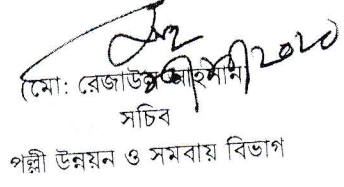 মো: রেজাউল আহসান
সচিব
পল্লী উন্নয়ন ও সমবায় বিভাগ